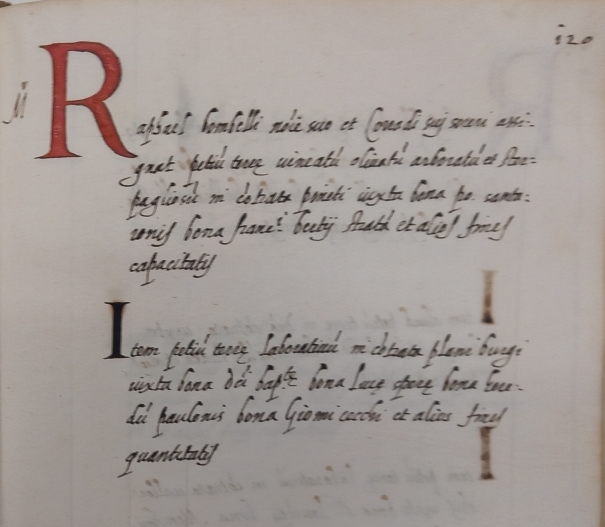 120
Raphael bombelli nōie suo et Conradi sui soceri assi-
gnat petiū terre uineatū oliuatū arboratū et
pagliosū in cōtrata pineti iuxta bona po. santo:
ronis bona franc.i bectij stratā et alios fines
capacitatis
Item petiū terre laboratiuū in cōtrata plani burgi
iuxta bona dci bap.te bona luce bona here-
dū paulonis bona Giomi cecchi et alios fines
quantitatis